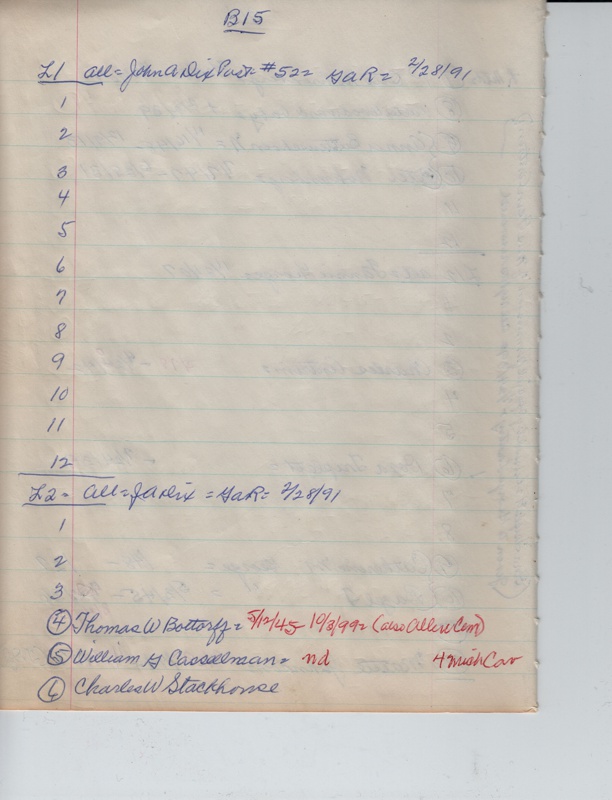 B15
L1 all = John A Dix Post = #52 = GAR = 2/28/91
1
2
3
4
5
6
7
8
9
10
11
12
L2 = all = JA Dix = GAR = 2/28/91
1
2
3
4 Thomas W Bottorff = 5/12/45 10/3/99 = (also Allere Cem)
5 William G Casselman = nd 4 Mich Cav
6 Charles W Stackhouse